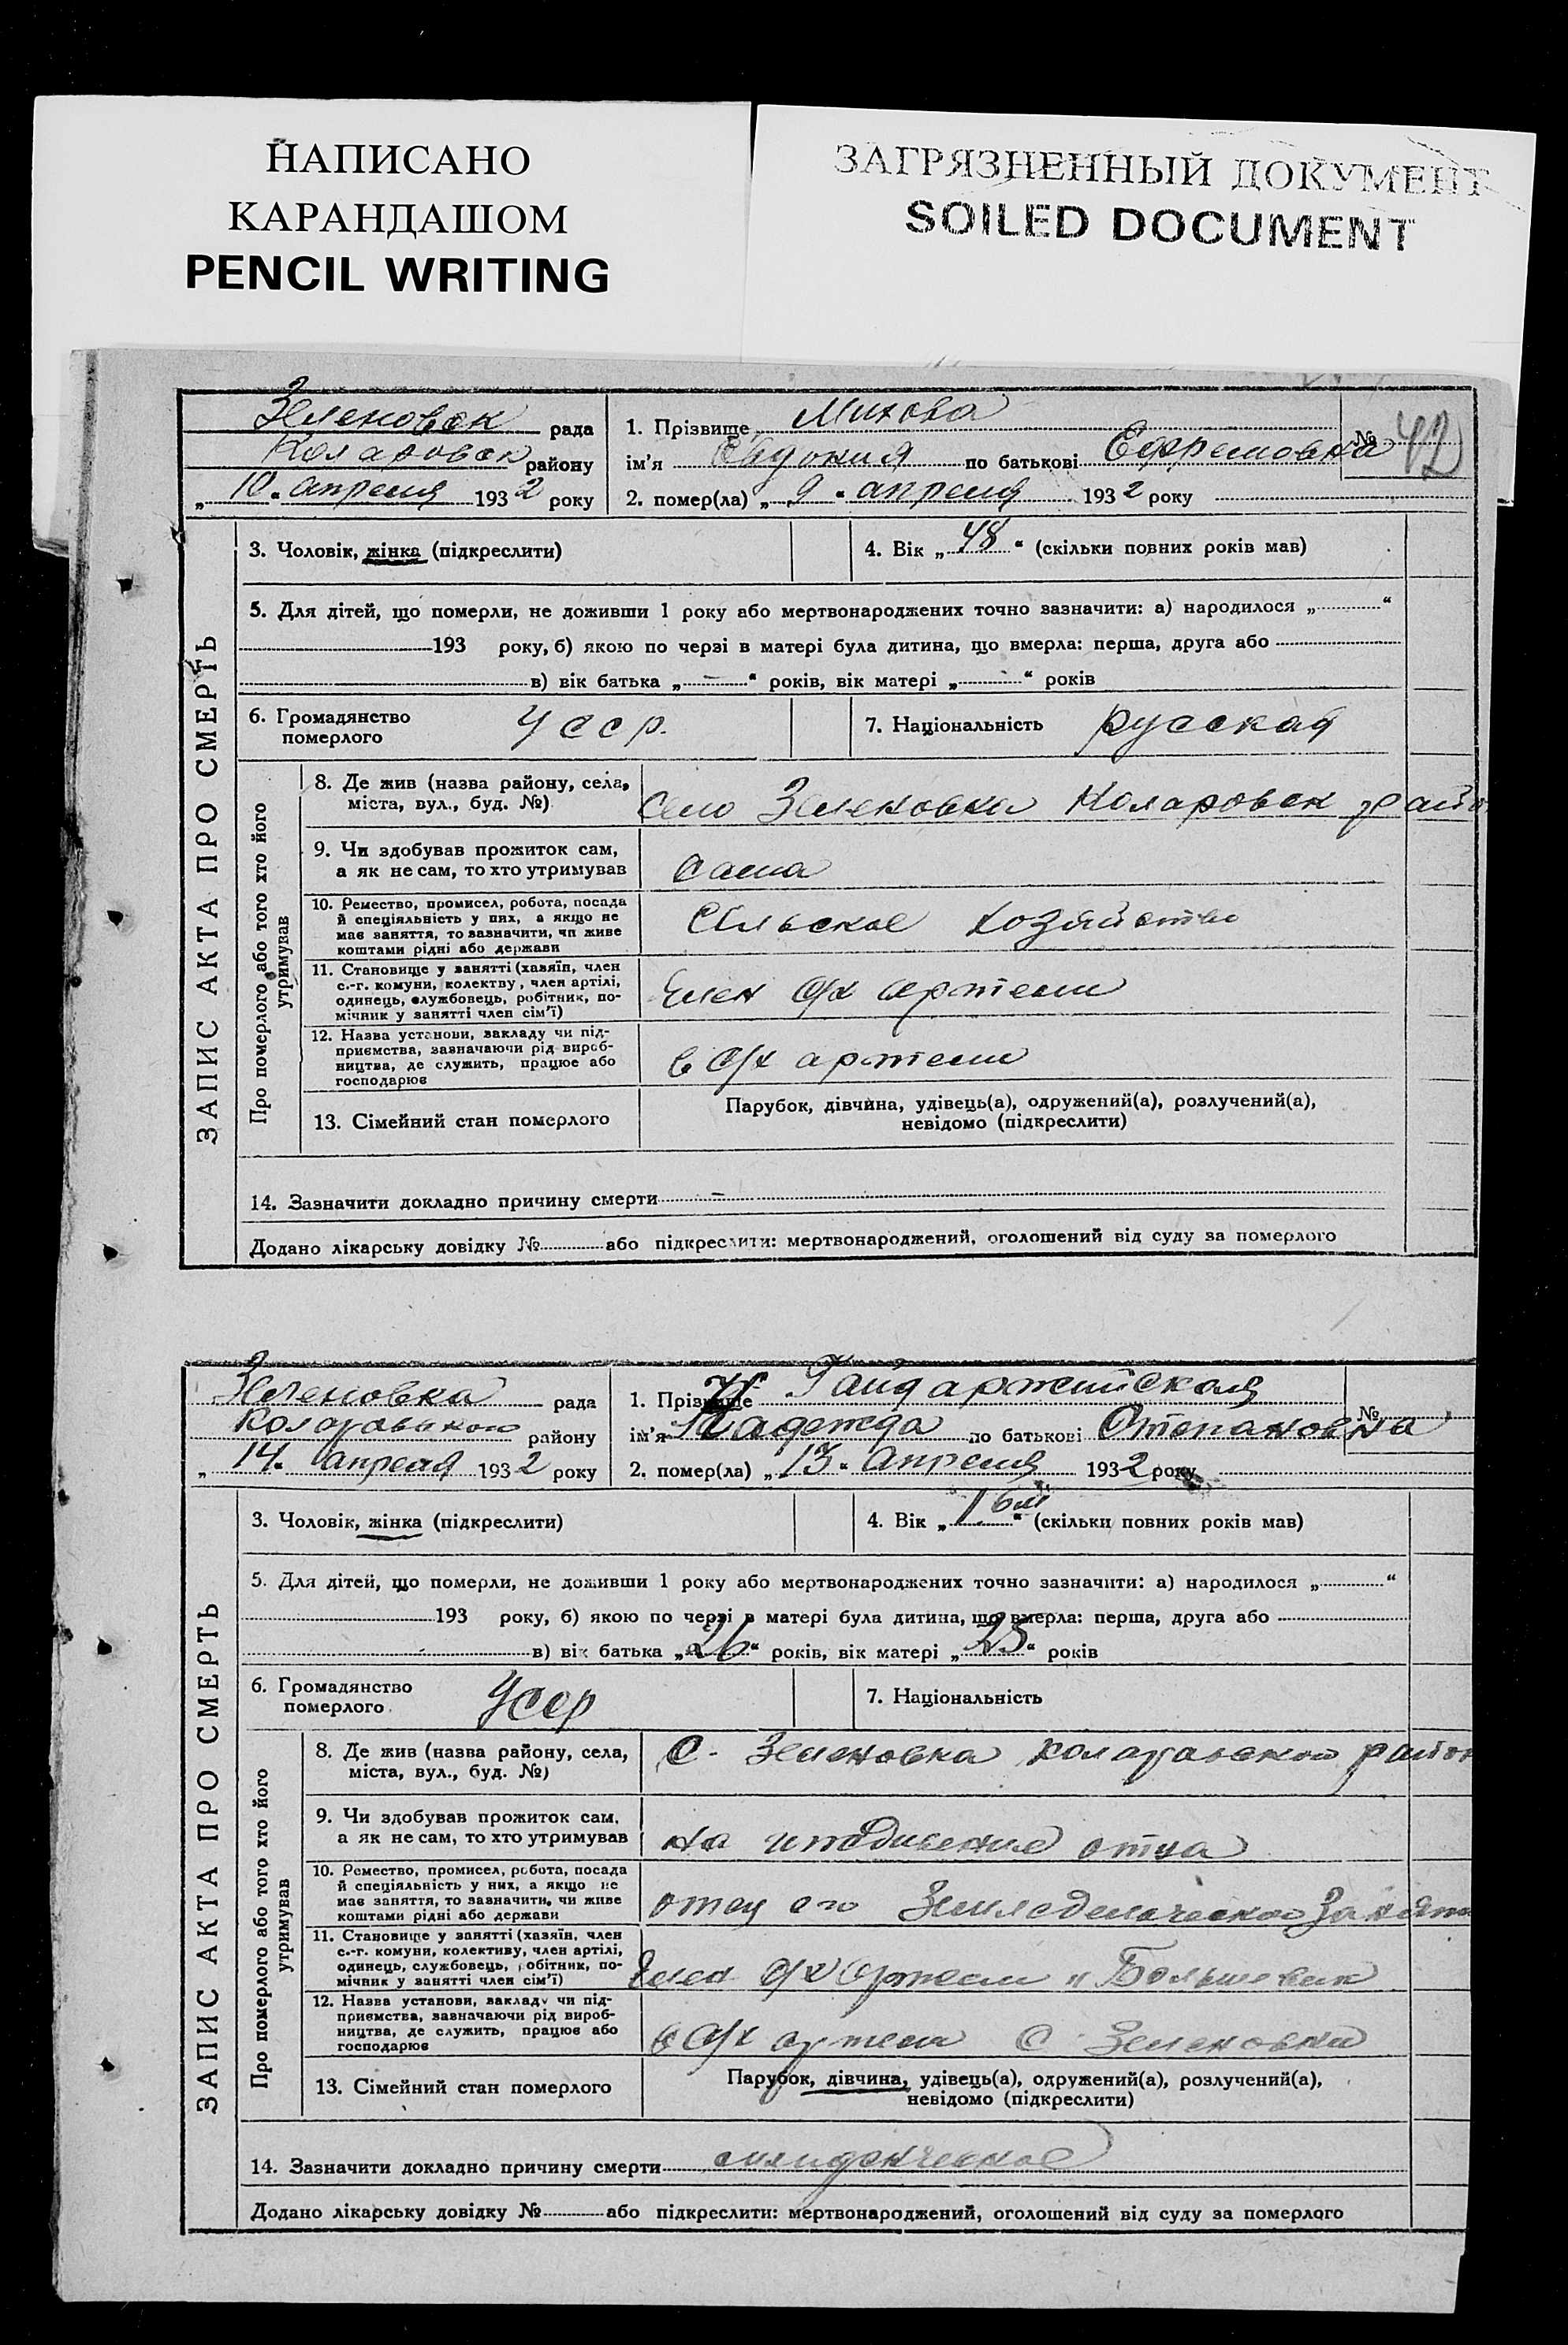 НАПИСАНО
КАРАНДАШОМ
PENCIL WRITING
ЗАГРЯЗНЕННЫЙ ДОКУМЕНТ
SOILED DOCUMENT
ЗАПИС АКТА ПРО СМЕРТЬ
Зеленовск рада
Коларовск району
„ 10. апреля 1932 року
1. Прізвище Михова
№ 42
ім'я Евдокия по батькові Ефремовна
2. помер(ла) „ 9 " апреля 1932 року
3. Чоловік, жінка (підкреслити)
4. Вік „ 48 “ (скільки повних років мав)
5. Для дітей, що померли, не доживши 1 року або мертвонароджених точно зазначити: а) народилося „ “
193 року, б) якою по черзі в матері була дитина, що вмерла: перша, друга або
в) вік батька „ — “ років, вік матері „ “ років
6. Громадянство
померлого
Усср.
7. Національність русская
Про померлого або того хто його
утримував
8. Де жив (назва району, села,
міста, вул., буд. №)
Село Зеленовка Коларовск райо
9. Чи здобував прожиток сам,
а як не сам, то хто утримував
сама
10. Ремество, промисел, робота, посада
й спеціяльність у них, а якщо не
має заняття, то зазначити, чи живе
коштами рідні або держави
Сельское хозяйство
11. Становище у занятті (хазяїн, член
с.-г. комуни, колективу, член артілі,
одинець, службовець, робітник, по-
мічник у занятті член сім'ї)
Член с/х артели
12. Назва установи, закладу чи під-
приємства, зазначаючи рід вироб-
ництва, де служить, працює або
господарює
в с/х артели
13. Сімейний стан померлого
Парубок, дівчина, удівець(а), одружений(а), розлучений(а),
невідомо (підкреслити)
14. Зазначити докладно причину смерти –
Додано лікарську довідку № або підкреслити: мертвонароджений, оголошений від суду за померлого
ЗАПИС АКТА ПРО СМЕРТЬ
Зеленовка рада
району
„ 14. апреля 1932 року
1. Прізвище Гайдаржийская
№
ім'я Надежда по батькові Степановна
2. помер(ла) „ 13 " Апреля 1932 року
3. Чоловік, жінка (підкреслити)
4. Вік „ “ (скільки повних років мав)
5. Для дітей, що померли, не доживши 1 року або мертвонароджених точно зазначити: а) народилося „ “
193 року, б) якою по черзі в матері була дитина, що вмерла: перша, друга або
в) вік батька „ 26 “ років, вік матері „ 25 “ років
6. Громадянство
померлого
Усср
7. Національність
Про померлого або того хто його
утримував
8. Де жив (назва району, села,
міста, вул., буд. №)
С. Зеленовка район
9. Чи здобував прожиток сам,
а як не сам, то хто утримував
на отца
10. Ремество, промисел, робота, посада
й спеціяльність у них, а якщо не
має заняття, то зазначити, чи живе
коштами рідні або держави
отец его
11. Становище у занятті (хазяїн, член
с.-г. комуни, колективу, член артілі,
одинець, службовець, робітник, по-
мічник у занятті член сім'ї)
Член с/х артели „Большевик
12. Назва установи, закладу чи під-
приємства, зазначаючи рід вироб-
ництва, де служить, працює або
господарює
в с/х артели С. Зеленовка
13. Сімейний стан померлого
Парубок, дівчина, удівець(а), одружений(а), розлучений(а),
невідомо (підкреслити)
14. Зазначити докладно причину смерти
Додано лікарську довідку № або підкреслити: мертвонароджений, оголошений від суду за померлого